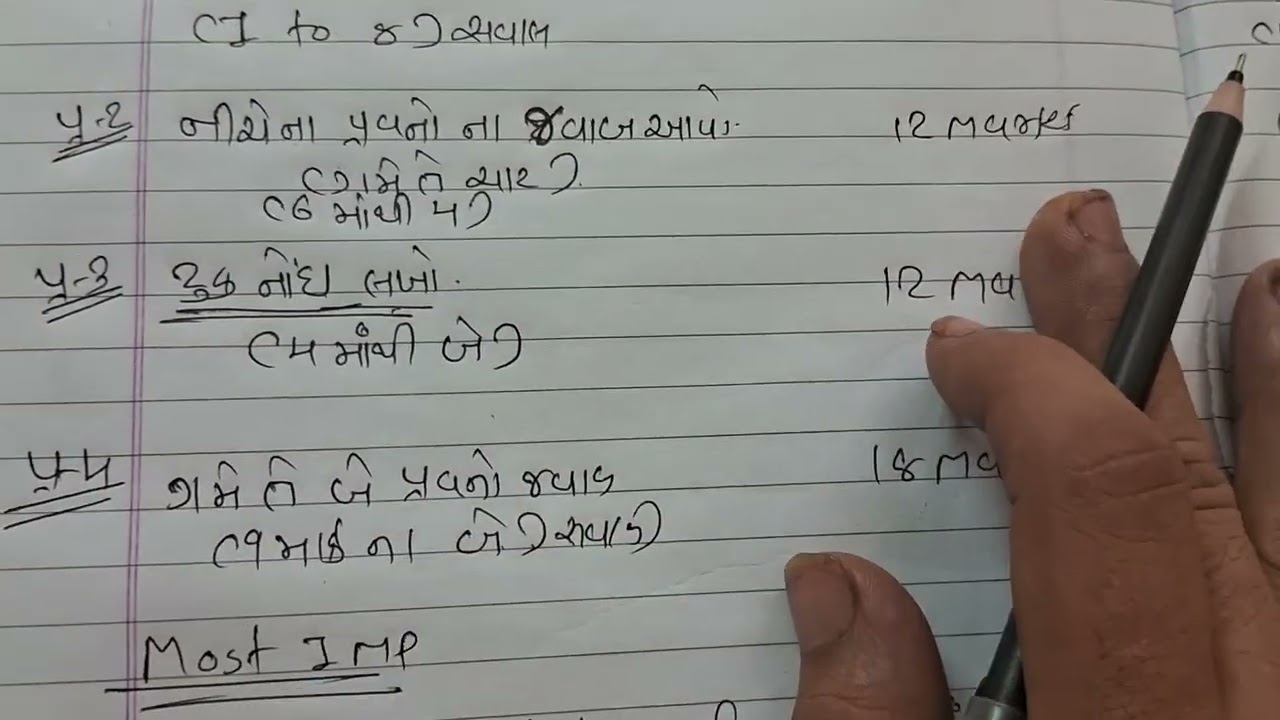 (I to 8) સવાલ
પ્ર-2 નીચેના પ્રશ્નો ના જવાબ આપો. 12 માર્ક્સ
(ગમે તે ચાર).
(6 માંથી ૫)
પ્ર-૩ ટુંક નોંધ લખો. 12 મા
(૫ માંથી બે)
ગમે તે બે પ્રશ્નો જવાબ 18 મા
(9 માર્ક ના બે) સવાલ)
Most IMP